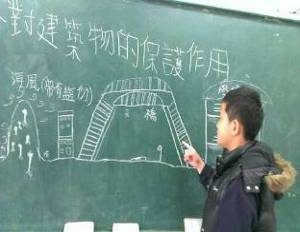 對建築物的保護作用
海風(帶有鹽分)
橋